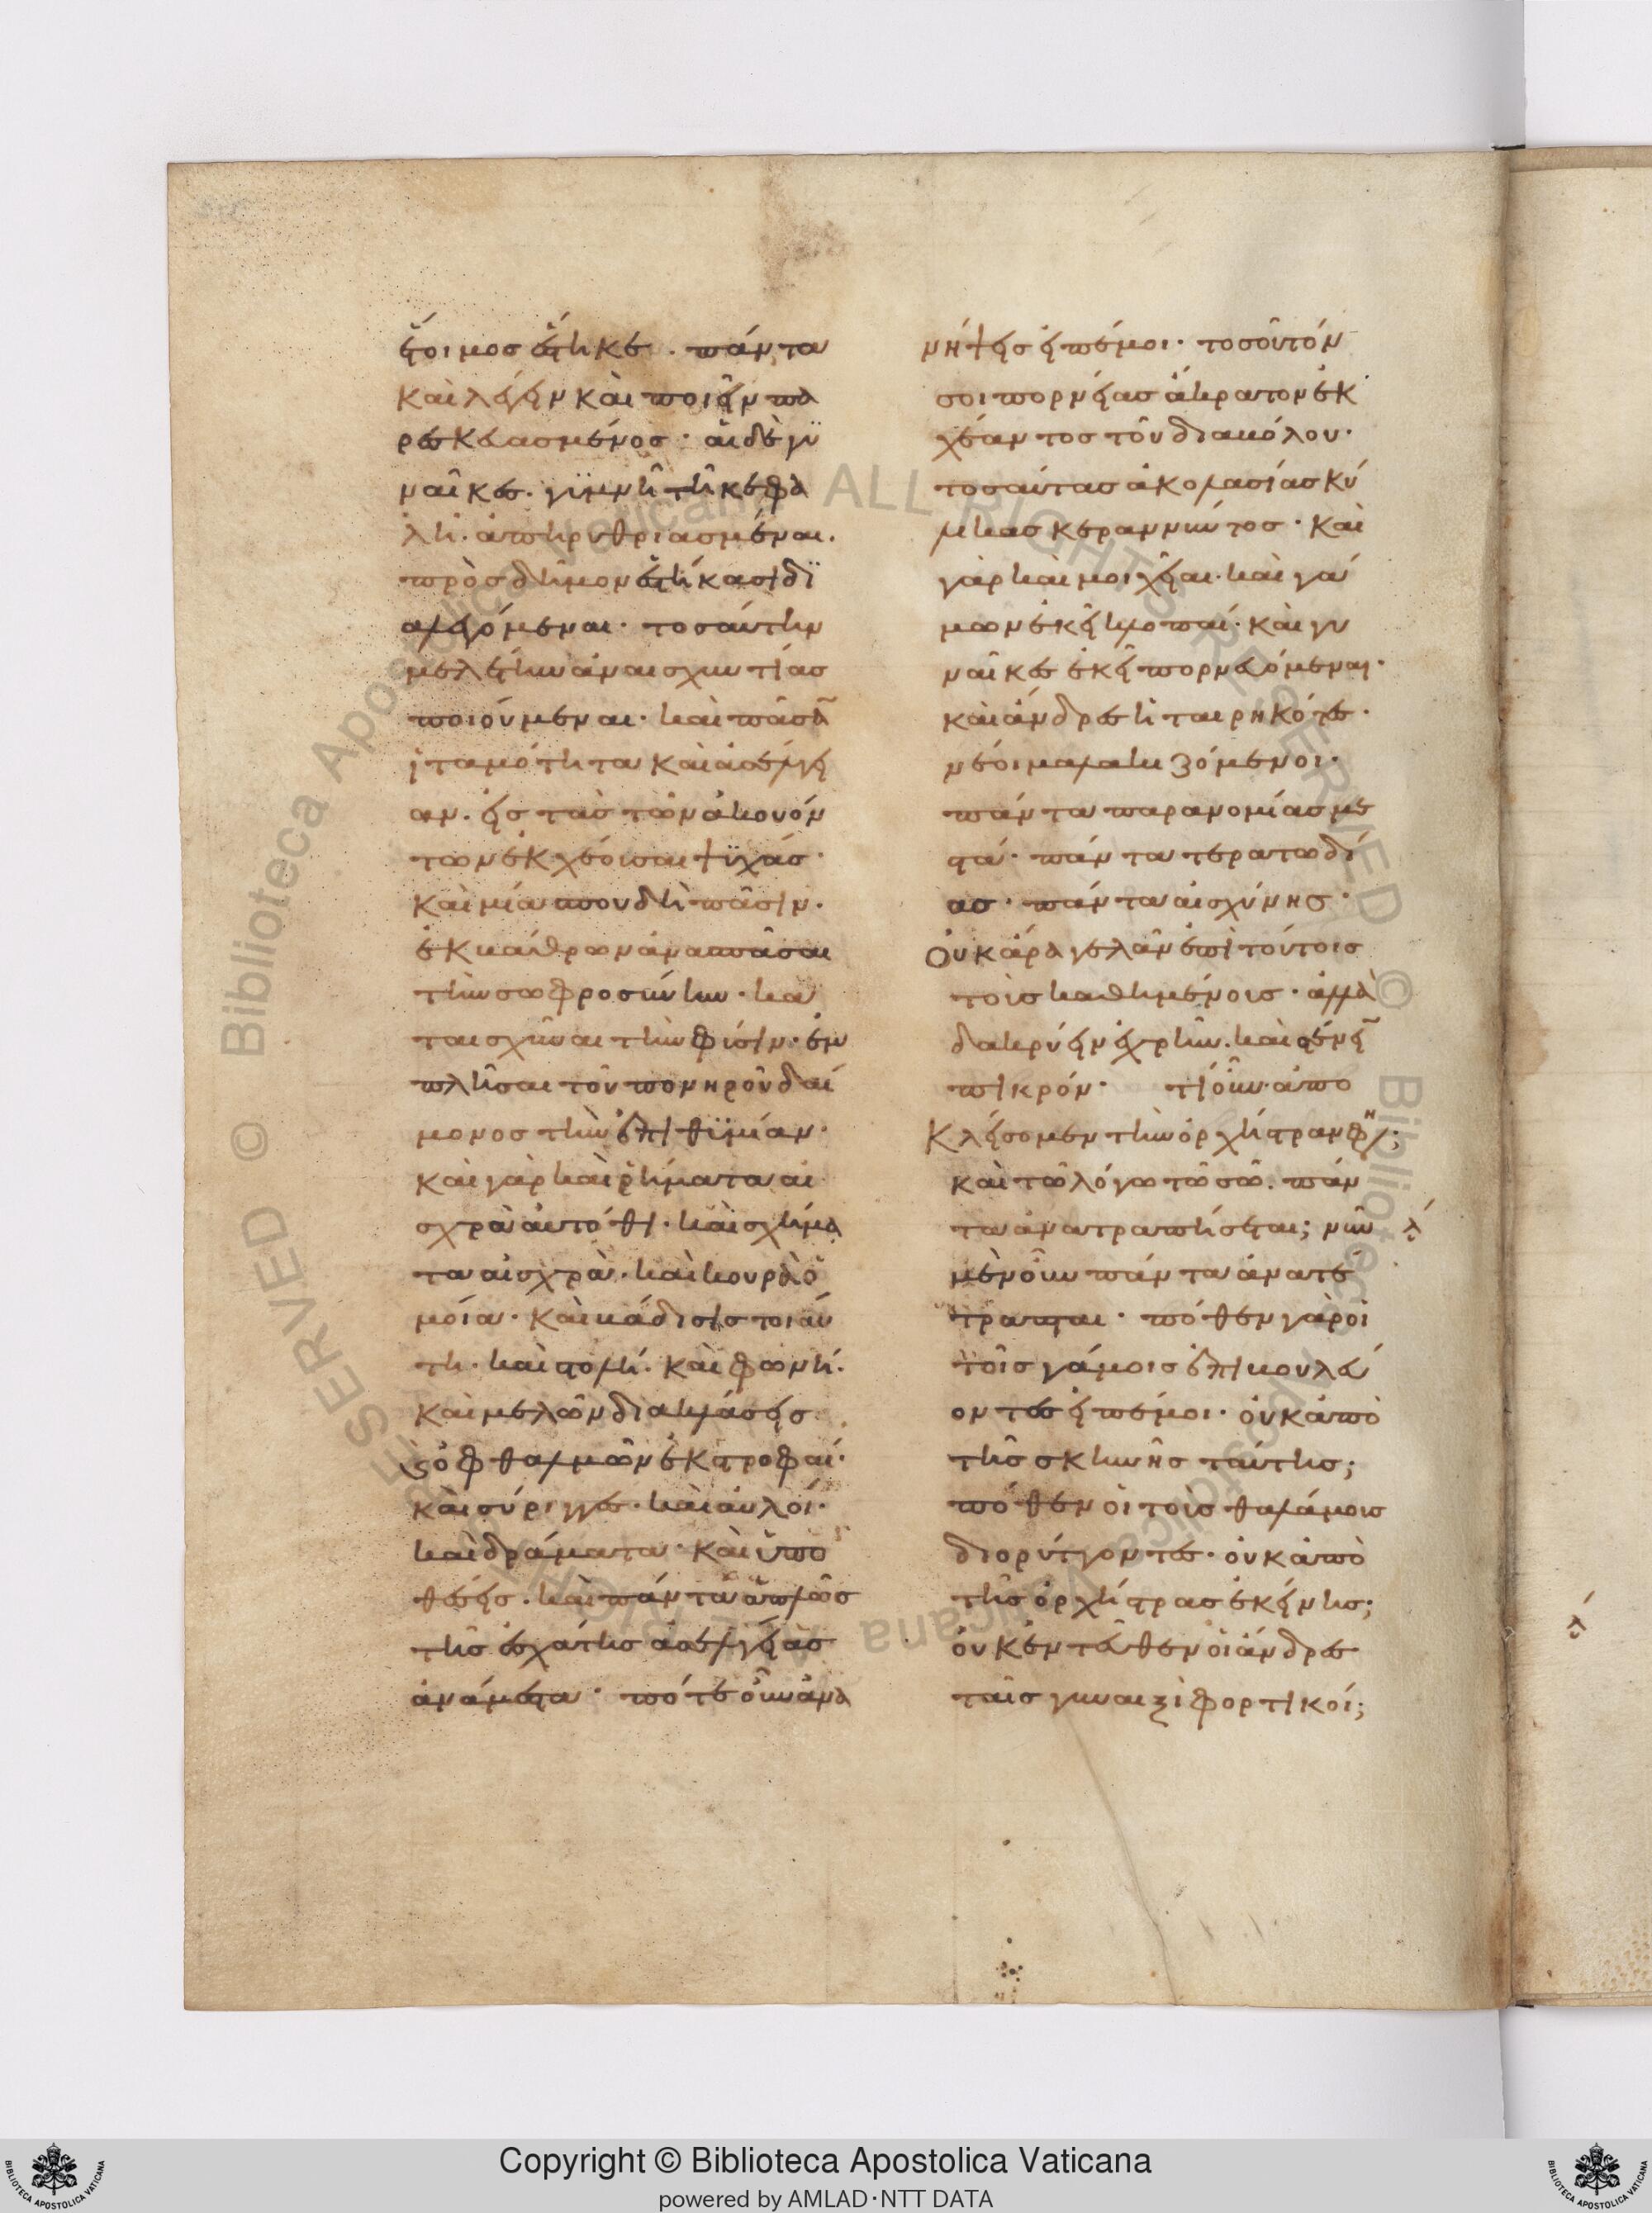 ἕτοιμος ἕστηκε. πάντα
καὶ λέγειν καὶ ποιεῖν πα
ρεσκευασμένος· αἱ δὲ γϋ
ναῖκες. γϋμνῆ τῆ κεφα
λῆ. ἀπηρυθριασμέναι.
πρὸς δῆμον ἑστήκασι δϊ
αλεγόμεναι· τοσαύτην
μελέτην ἀναισχυντίας
ποιούμεναι· καὶ πᾶσαν
ἰταμότητα καὶ ἀσέλγει
αν. εἰς τὰς τῶν ἀκουόν
των ἐκχέουσαι ψϋχάς·
καὶ μία σπουδὴ πᾶσιν.
ἐκ βάθρων ἀνασπᾶσαι
τὴν σωφροσύνην· κα
ταισχῦναι τὴν φύσιν· ἐμ
πλῆσαι τοῦ πονηροῦ δαί
μονος τὴν ἐπιθϋμίαν·
καὶ γὰρ καὶ ῥήματα αἰ
σχρὰ αὐτόθι· καὶ σχήμα
τα αἰσχρὰ· καὶ κουρὰ ὁ
μοία· καὶ βάδισις τοιαύ
τη· καὶ στολή· καὶ φωνή.
καὶ μελῶν διακλάσεις
καὶ ὀφθαλμῶν ἐκστροφαί·
καὶ σύριγγες· καὶ αὐλοί·
καὶ δράματα· καὶ ὑπο
θέσεις· καὶ πάντα ἁπλῶς
τῆς ἐσχάτης ἀσελγείας
ἀνάμεστα· πότε οὖν ἀνα
νήψεις εἰπέ μοι· τοσοῦτόν
σοι πορνείας ἄκρατον ἐκ
χέαντος τοῦ διαβόλου·
τοσαύτας ἀκολασίας κύ
λικας κεραννύντος· καὶ
γὰρ καὶ μοιχεῖαι· καὶ γά
μων ἐκεῖ κλοπαί· καὶ γυ
ναῖκες ἐκεῖ πορνευόμεναι·
καὶ ἄνδρες ἡταιρηκότες·
νέοι μαλακιζόμενοι·
πάντα παρανομίας με
στά· πάντα τερατωδί
ας· πάντα αἰσχύνης·
Οὐκ ἄρα γελᾶν ἐπὶ τούτοις
τοῖς καθημένοις· ἀλλὰ
δακρύειν ἐχρῆν. καὶ στένειν
πικρόν· τί οὖν· ἀπο
κλείσομεν τὴν ὀρχήστραν φησί·
καὶ τῶ λόγω τῶ σῶ. πάν
τα ἀνατραπήσεται; νῦν
μὲν οὖν πάντα ἀνατέ
τραπται· πόθεν γὰρ οἱ
τοῖς γάμοις ἐπιβουλεύ
οντες εἰπέ μοι· οὐκ ἀπὸ
τῆς σκηνῆς ταύτης;
πόθεν οἱ τοὺς θαλάμους
διορύττοντες· οὐκ ἀπὸ
τῆς ὀρχήστρας ἐκείνης;
οὐκ ἐντεῦθεν οἱ ἄνδρες
ταῖς γυναιξὶ φορτικοί;
Copyright © Biblioteca Apostolica Vaticana
powered by AMLAD·NTT DATA